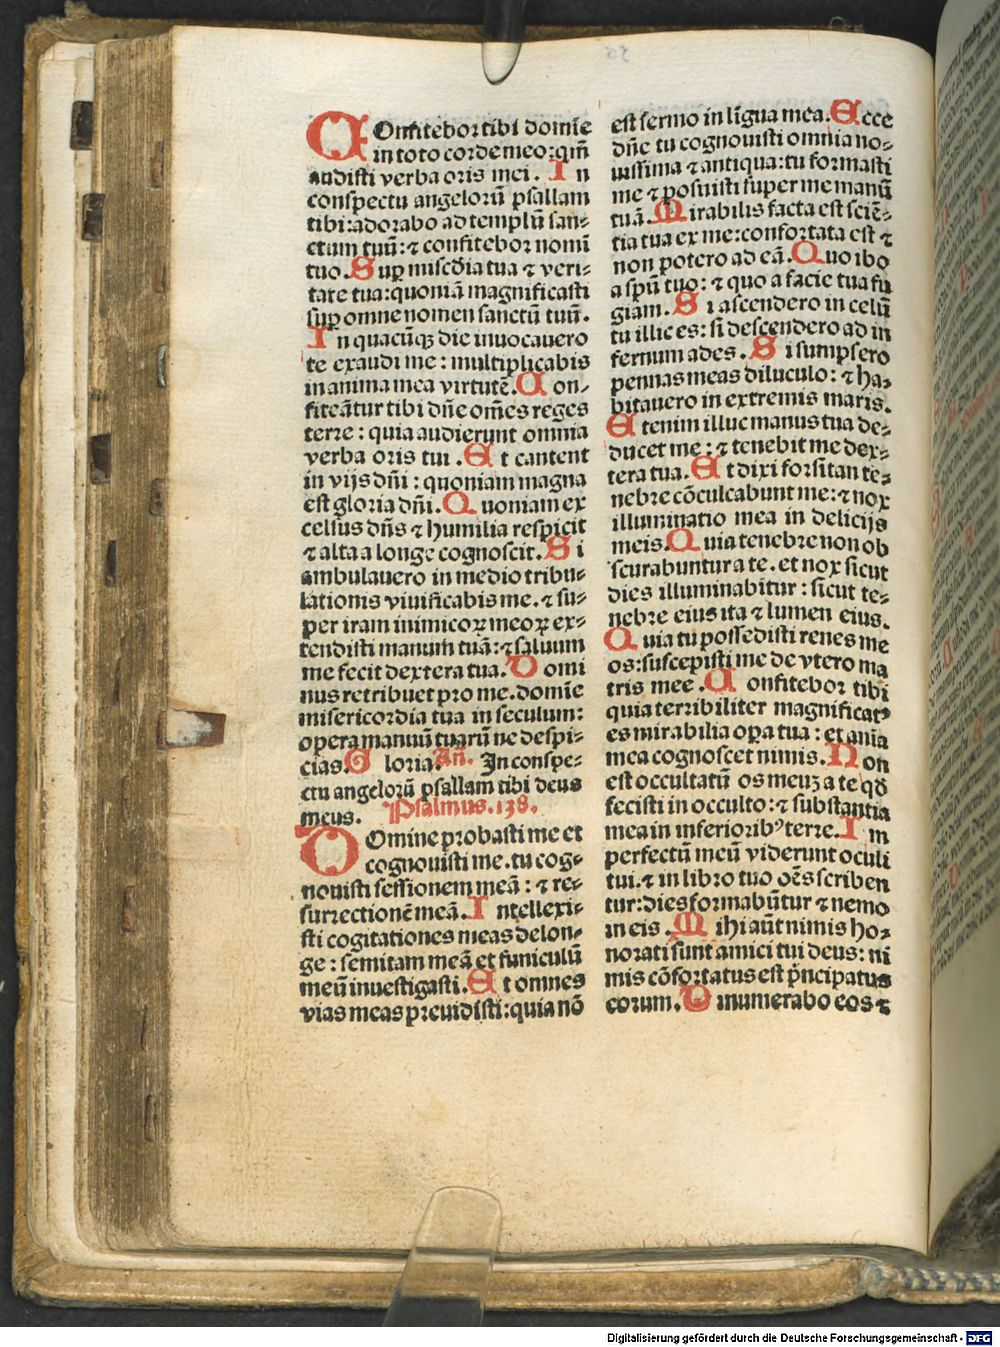 COnfitebor tibi domīe
in toto corde meo: qm̄
audisti verba oris mei. In
conspectu angeloꝝ psallam
tibi: adorabo ad templū san⸗
ctum tuū: ⁊ confitebor nomī
tuo. Suꝑ miscdia tua ⁊ veri⸗
tate tua: quoniā magnificasti
suꝑ omne nomen sanctū tuū.
In quacūqꝫ die inuocauero
te exaudi me: multiplicabis
in anima mea virtutē. Con⸗
fiteātur tibi dn̄e om̄es reges
terre: quia audierunt omnia
verba oris tui. Et cantent
in vijs dn̄i: quoniam magna
est gloria dn̄i. Quoniam ex
celsus dn̄s ⁊ humilia respicit
⁊ alta a longe cognoscit. Si
ambulauero in medio tribu⸗
lationis viuificabis me. ⁊ su⸗
per iram inimicoꝝ meoꝝ ex⸗
tendisti manum tuā: ⁊ saluum
me fecit dextera tua. Domi
nus retribuet pro me. domīe
misericordia tua in seculum:
opera manuū tuarū ne despi⸗
cias. Gloria. Añ. In conspe⸗
ctu angelorū psallam tibi deus
meus. Psalmus. 138.
DOmine probasti me et
cognouisti me. tu cog⸗
nouisti sessionem meā: ⁊ re⸗
surrectionē meā. Intellexi⸗
sti cogitationes meas delon⸗
ge: semitam meā et funiculū
meū inuestigasti. Et omnes
vias meas preuidisti: quia nō
est sermo in līgua mea. Ecce
dn̄e tu cognouisti omnia no⸗
uissima ⁊ antiqua: tu formasti
me ⁊ posuisti super me manū
tuā. Mirabilis facta est sciē⸗
tia tua ex me: confortata est ⁊
non potero ad eā. Quo ibo
a spū tuo: ⁊ quo a facie tua fu
giam. Si ascendero in celū
tu illic es: si descendero ad in
fernum ades. Si sumpsero
pennas meas diluculo: ⁊ ha⸗
bitauero in extremis maris.
Etenim illuc manus tua de⸗
ducet me: ⁊ tenebit me dex⸗
tera tua. Et dixi forsitan te⸗
nebre cōculcabunt me: ⁊ nox
illuminatio mea in delicijs
meis. Quia tenebre non ob
scurabuntur a te. et nox sicut
dies illuminabitur: sicut te⸗
nebre eius ita ⁊ lumen eius.
Quia tu possedisti renes me
os: suscepisti me de vtero ma
tris mee. Confitebor tibi
quia terribiliter magnificatꝰ
es mirabilia oꝑa tua: et aīa
mea cognoscet nimis. Non
est occultatū os meuꝫ a te qd̄
fecisti in occulto: ⁊ substantia
mea in inferioribꝰ terre. Im
perfectū meū viderunt oculi
tui. ⁊ in libro tuo oēs scriben
tur: dies formabūtur ⁊ nemo
in eis. Mihi aūt nimis ho⸗
norati sunt amici tui deus: ni
mis cōfortatus est pͥncipatus
eorum. Dinumerabo eos ⁊
Digitalisierung gefördert durch die Deutsche Forschungsgemeinschaft - DFG